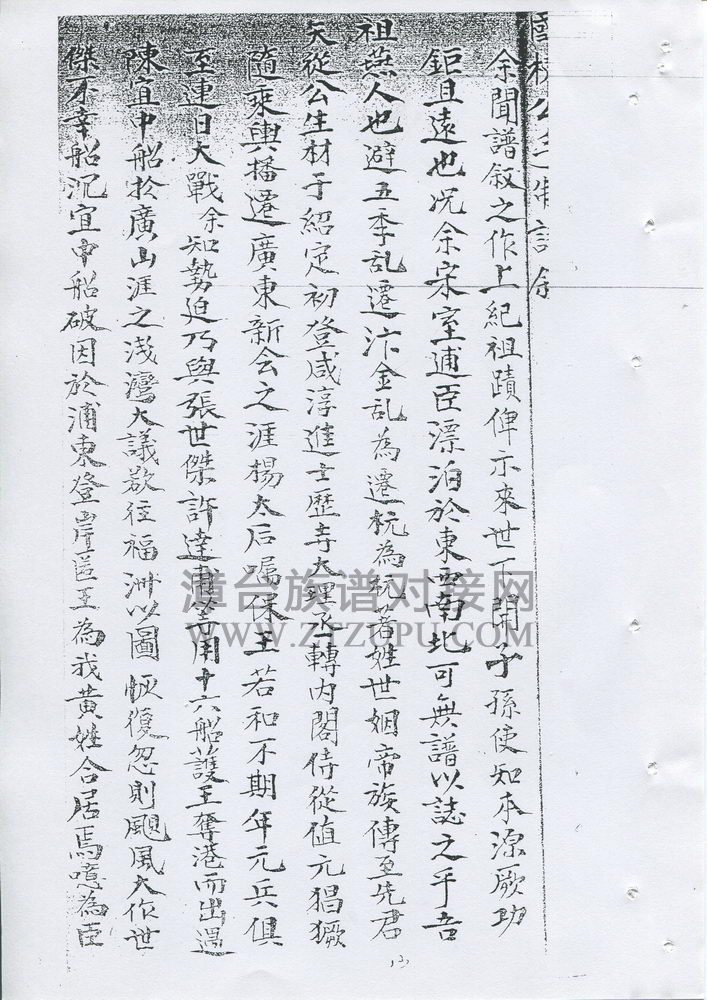 余聞譜叙之作上紀祖蹟俾示來世下開子孫使知本源厥功
鉅且遠也况余宋室逋臣漂泊於東西南北可無譜以誌之乎吾
祖燕人也避五季乱遷汴金乱為遷杭為杭著姓世姻帝族傳至先君
天從公生材于紹定初登咸淳進士歷寺大理丞轉内閣侍從值元猖獗
隨乘輿播遷廣東新会之涯楊太后嘱保王若和不期年元兵俱
至連日大戰余知勢迫乃與張世傑許達甫等用十六船護王奪港而出遇
陳宜中船於廣山涯之浅灣大議欲往福洲以圖恢復忽則颶風大作世
傑不幸船沉宜中船破因於浦東登岸匿王為我黄姓合居焉噫為臣
漳台族谱对接网
WWW.ZTZUPU.COM